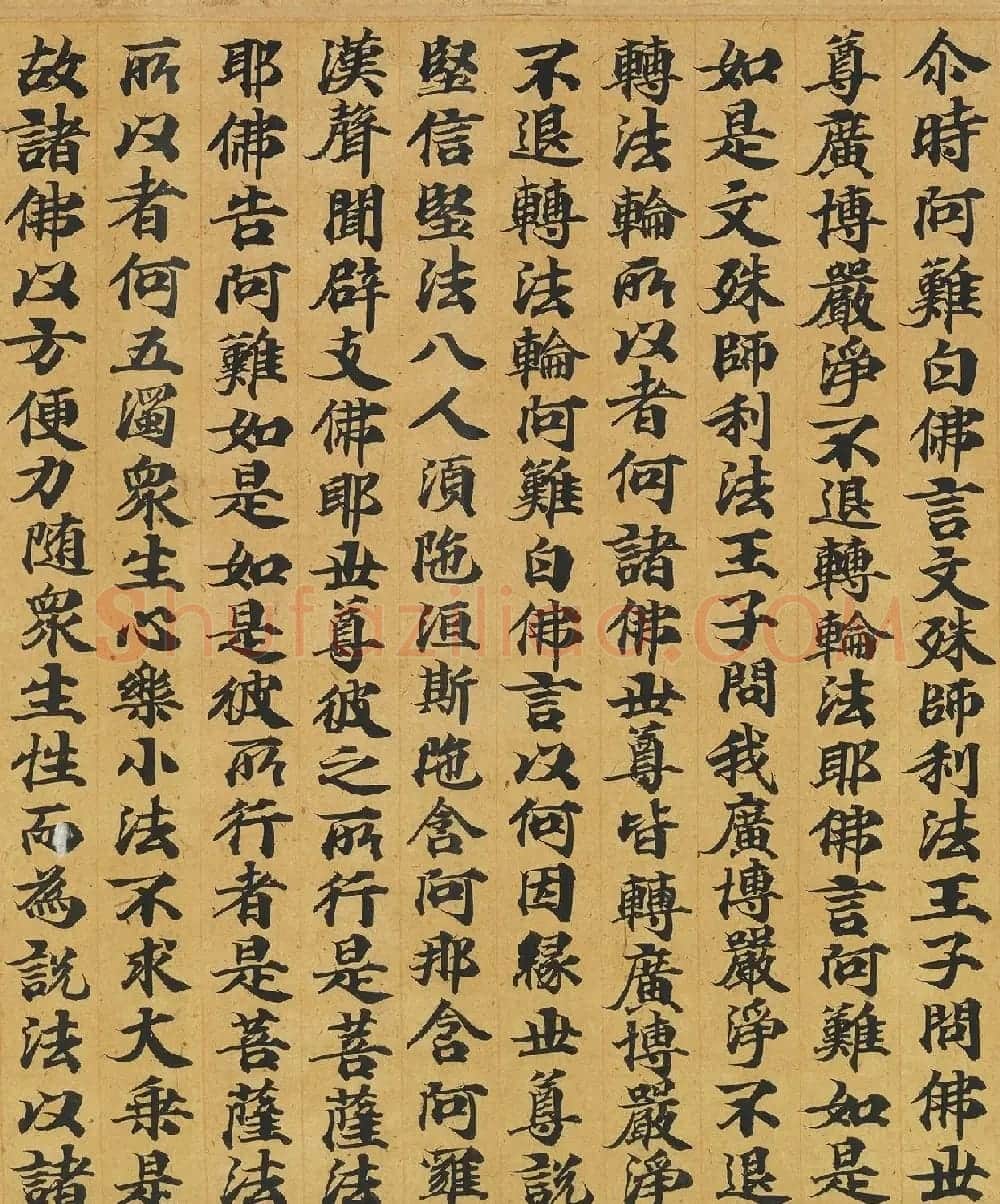 尒時阿難白佛言文殊師利法王子問佛世
尊廣博嚴淨不退轉輪法耶佛言阿難如是
如是文殊師利法王子問我廣博嚴淨不退
轉法輪所以者何諸佛世尊皆轉廣博嚴淨
不退轉法輪阿難白佛言以何因緣世尊說
堅信堅法八人須陁洹斯陁含阿那含阿羅
漢聲聞辟支佛耶世尊彼之所行是菩薩法
耶佛告阿難如是如是彼所行者是菩薩法
所以者何五濁眾生心樂小法不求大乗是
故諸佛以方便力随眾生性而為說法以諸
Shufaziliao.COM